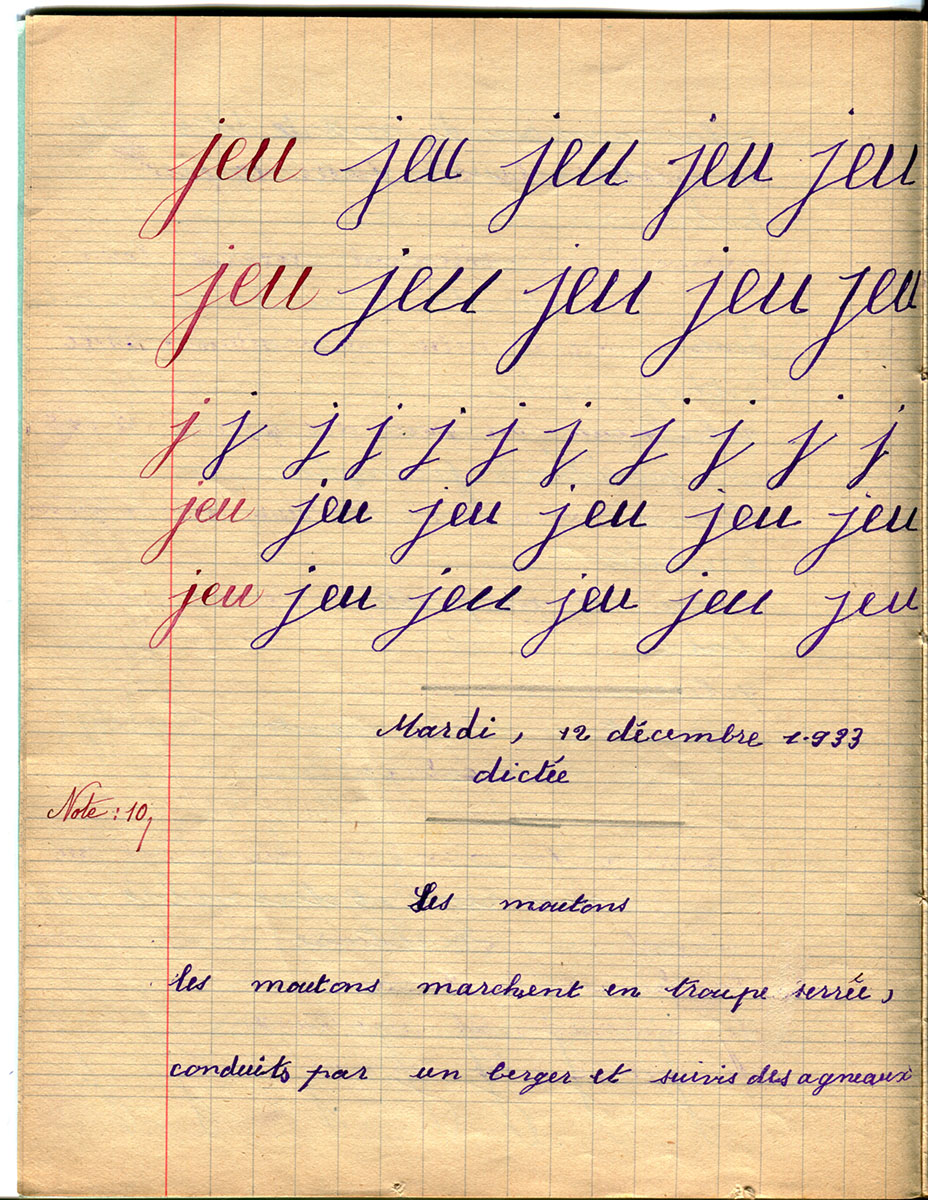 jeu jeu jeu jeu jeu
jeu jeu jeu jeu jeu
j j j j j j j j j j j
jeu jeu jeu jeu jeu jeu
jeu jeu jeu jeu jeu jeu
Mardi, 12 décembre 1.933
dictée
Note : 10,
Les moutons
les moutons marchent en troupe serrée,
conduits par un berger et suivis des agneaux